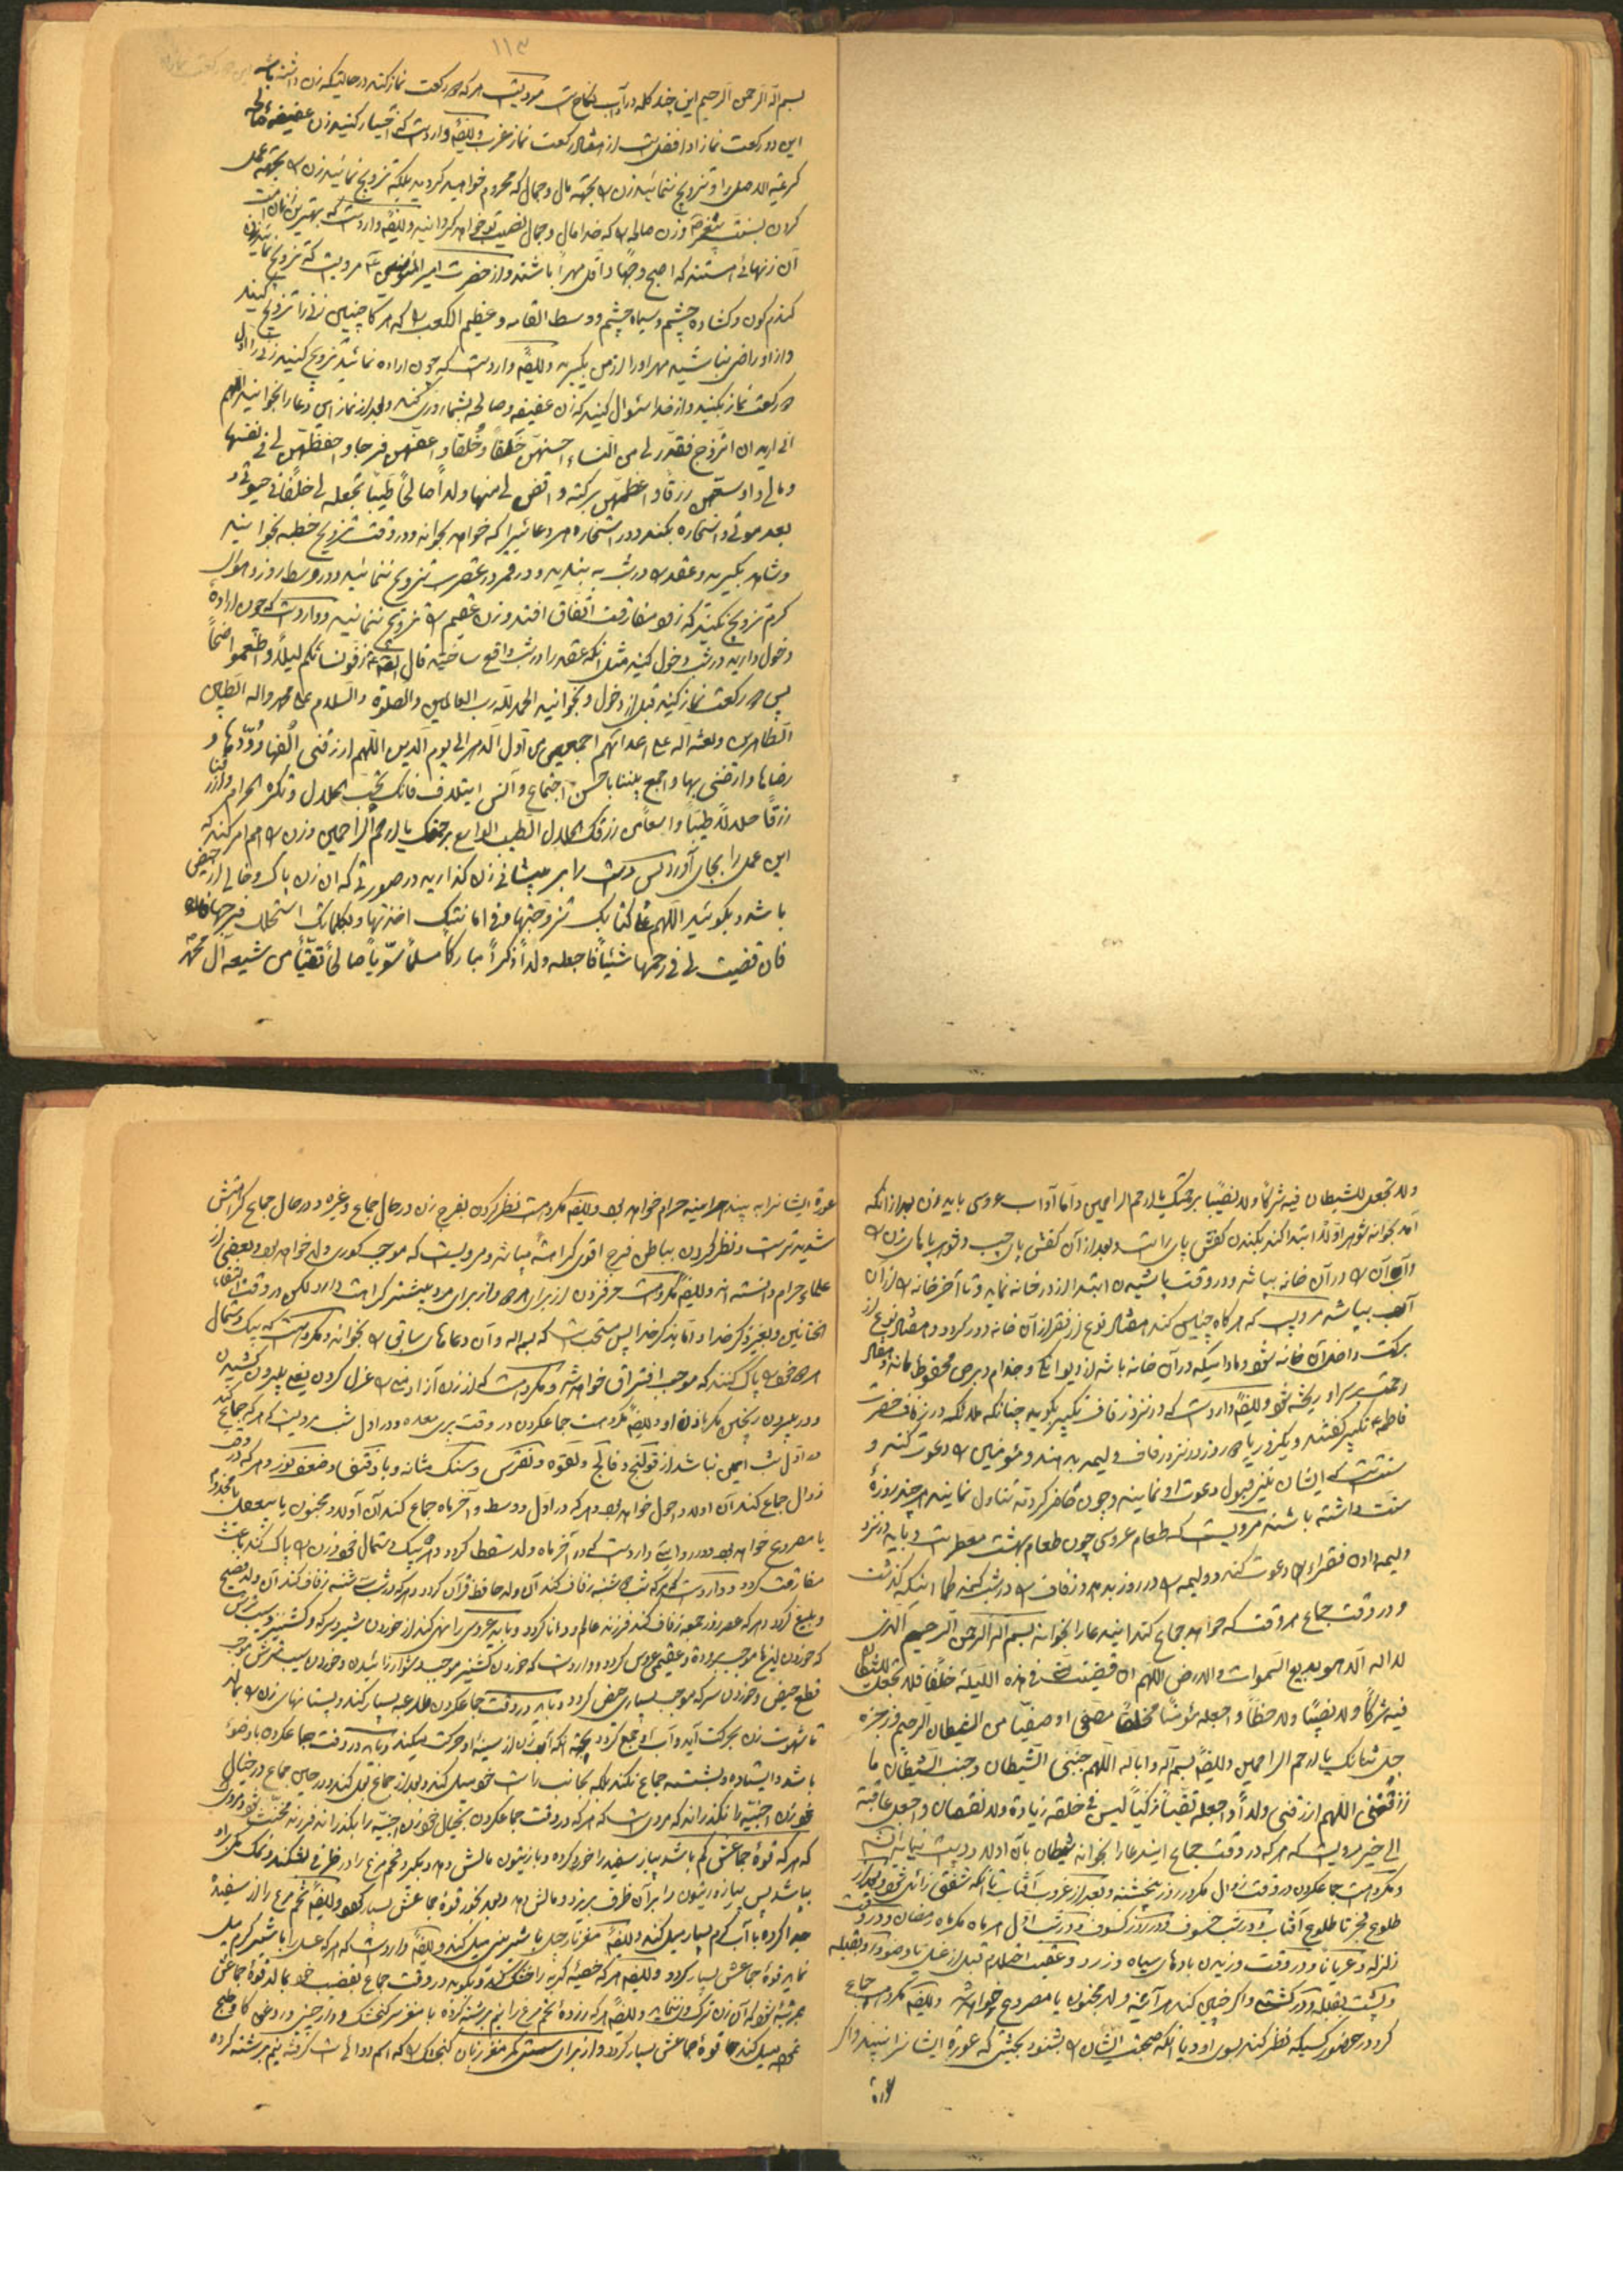 ١١٣
بسم الله الرحمن الرحیم این چند کلمه در آداب نکاح است مرویست هر که دو رکعت نماز کند در حالتیکه زن داشته باشد
این دو رکعت نماز او افضل است از هفتاد رکعت نماز عزب وایضاً وارد است که اختیار کنید زن عفیفه صالحه
کریمة الاصل را و تزویج ننمائید زن را بجهة مال و جمال که محروم خواهید گردید بلکه تزویج نمائید زن را بجهة عمل
کردن بسنت پیغمبر و زن صالحه را که خدا مال و جمال نصیب تو خواهد گردانید وایضاً وارد است که بهترین زنان امت
آن زنهائی هستند که اصبح وجهاً و اقل مهراً باشند و از حضرت امیر المؤمنین مرویست که تزویج نمائید زن
گندم گون و گشاده چشم و سیاه چشم و وسط القامه و عظیم الکعب را که هر گاه چنین زنی را تزویج کنید
و از او راضی نباشید مهر او را از من بگیرید وایضاً وارد است که چون اراده نمائید تزویج کنید زنی را اول
دو رکعت نماز بکنید و از خدا سئوال کنید که زن عفیفه و صالحه بشما روزی کند و بعد از نماز این دعا را بخوانید اللهم
انی ارید ان اتزوج فقدر لی من النساء احسنهن خَلقاً و خُلقاً و اعفهن فرجا و احفظهن لی فی نفسها
و مالی و اوسعهن رزقاً و اعظمهن برکته و اقض لی منها ولداً صالحاً طیباً تجعله لی خلفاً فی حیوتی و
بعد موتی و استخاره بکند و در استخاره هر دعائیرا که خواهد بخواند و در وقت تزویج خطبه بخوانید
و شاهد بگیرید و عقد را در شب به بندید و در قمر در عقرب تزویج ننمائید و در وسط روز و هوای
گرم تزویج نکنید که زود مفارقت اتفاق افتد و زن عقیم را تزویج ننمائید و وارد است که چون اراده
دخول دارید در شب دخول کنید مثل آنکه عقد را در شب واقع ساختید قال زفّوا نسائکم لیلاً و اطعموا ضحیً
پس دو رکعت نماز کنید قبل از دخول و بخوانید الحمد لله رب العالمین والصلوة والسلام علی محمد واله الطیبین
الطاهرین ولعنة الله علی اعدائهم اجمعین من اول الدهر الی یوم الدین اللهم ارزقنی الفها و ودّها و
رضاها وارضنی بها واجمع بیننا باحسن اجتماع وآنس ایتلاف فانک تحب الحلال و تکره الحرام وارزقنا
رزقاً حلالاً طیباً واسعاً من رزقک الحلال الطیب الواسع برحمتک یا ارحم الراحمین و زن را هم امر کنید که
این عمل را بجای آورد پس دست را بر پیشانی زن گذارید در صورتی که آن زن پاک و خالی از حیض
باشد و بگوئید اللهم علی کتابک تزوجتها وفی امانتک اخذتها وبکلماتک استحللت فرجها
فان قضیت لی فی رحمها شیئاً فاجعله ولداً ذکراً مبارکاً مسلماً سویاً صالحاً تقیاً من شیعه آل محمد
ولا تجعل للشیطان فیه شرکاً ولا نصیباً برحمتک یا ارحم الراحمین و اما آداب عروسی باید زن بعد از آنکه
آمد بخانه شوهر اولاً ابتدا کند بکندن کفش پای راست و بعد از آن کفش پای چپ و شوهر پاهای زن را
و آب آن را در آن خانه بپاشد و در وقت پاشیدن ابتدا از در خانه نماید و تا آخر خانه را از آن
آب بپاشد مرویست که هر گاه چنین کند هفتاد نوع از فقر از آن خانه دور گردد و هفتاد نوع از
برکت داخل آن خانه شود و مادامیکه در آن خانه باشد از دیوانگی و جذام و برص محفوظ ماند و هفتاد
رحمت بر سر او ریخته شود وایضاً وارد است که در نزد زفاف تکبیر بگویید چنانکه ملائکه در زفاف حضرت
فاطمه تکبیر گفتند و یکروز یا دو روز در نزد زفاف ولیمه بدهند و مؤمنین را دعوت کنند و
سنت است که ایشان نیز قبول دعوت او نمایند و چون حاضر گردند تناول نمایند هر چند روزه
سنت داشته باشند مرویست که طعام عروسی چون طعام بهشت معطر است و باید در نزد
ولیمه دادن فقراء را دعوت کند و ولیمه را در روز بدهد و زفاف را در شب کند کما اینکه گذشت
و در وقت جماع هر وقت که خواهد جماع کند ایندعا را بخواند بسم الله الرحمن الرحیم الذی
لا اله الا هو بدیع السموات والارض اللهم ان قضیت منی فی هذه اللیلة خلقاً فلا تجعل للشیطان
فیه شرکاً ولا نصیباً ولا حظاً واجعله مؤمناً مخلصاً مصفی او صفیا من الشیطان الرجیم ورجزه
جل ثنائک یا ارحم الراحمین وایضاً بسم الله وبالله اللهم جنبنی الشیطان وجنب الشیطان ما
رزقتنی اللهم ارزقنی ولداً واجعله تقیاً زکیاً لیس فی خلقه زیادة ولا نقصان واجعل عاقبته
الی خیر مرویست که هر که در وقت جماع ایندعا را بخواند شیطان بآن اولاد
و مکروهست جماعکردن در وقت زوال مگر در روز پنجشنبه و بعد از غروب آفتاب تا آنکه شفق زائل شود و بعد از
طلوع فجر تا طلوع آفتاب و در شب خسوف و در روز کسوف و در شب اول هر ماه مگر ماه رمضان و در وقت
زلزله و عریاناً و در وقت وزیدن بادهای سیاه و زرد و عقیب احتلام قبل از غسل یا وضو و رو بقبله
و پشت بقبله و در کشتی و اگر چنین کند هر آینه ولد مجنون یا مصروع خواهد شد وایضاً مکروهست جماع
کردن در حضور کسیکه نظر کند بسوی او و یا آنکه صحبت ایشان را بشنود بحیثی که عورة ایشانرا ببیند و اگر
عورة ایشانرا به بیند هر آینه حرام خواهد بود وایضاً مکروهست نظر کردن بفرج زن در حال جماع و غیره و در حال جماع کراهتش
شدیدتر است و نظر کردن بباطن فرج اقوی کراهةً میباشد و مرویست که موجب کوری ولد خواهد بود و بعضی از
علماء حرام دانسته اند وایضاً مکروهست حرف زدن از برای هر دو و از برای مرد بیشتر کراهت دارد لکن در وقت التقاء
الختانین و بغیر ذکر خدا و اما بذکر خدا پس مستحب است که بسم الله و آن دعاهای سابق را بخواند و مکروهست که بیک دستمال
هر دو خود را پاک کنند که موجب افتراق خواهد شد و مکروهست که از زن آزاد منی را عزل کردن یعنی بیرون کشیدن
و در بیرون ریختن مگر باذن او وایضاً مکروهست جماعکردن در وقت پری معده و در اول شب مرویست که هر که جماع کند
در اول شب ایمن نباشد از قولنج و فالج و لقوه و نقرس و سنگ مثانه و ضعف نور و هر که در وقت
زوال جماع کند آن اولاد احول خواهد بود و هر که در اول و وسط و آخر ماه جماع کند آن اولاد مجنون یا مجذوم
یا مصروع خواهد بود و در روایتی وارد است که در آخر ماه ولد سقط گردد و هر که بیک دستمال خود و زن را پاک کند باعث
مفارقت گردد و وارد است که هر که شب دوشنبه زفاف کند آن ولد حافظ قرآن گردد و هر که در شب سه شنبه زفاف کند آن ولد فصیح
و بلیغ گردد و هر که عصر روز جمعه زفاف کند فرزند عالم و دانا گردد و باید عروس را نهی کند از خوردن شیر و سرکه و گشنیز و سیب ترش
که خوردن اینها موجب برودة و عقیمی عروس گردد و وارد است که خوردن گشنیز موجب دشوار زائیدن و خوردن سیب ترش موجب
قطع حیض و خوردن سرکه موجب بسیاری حیض گردد و باید در وقت جماعکردن ملاعبه بسیار کند و پستانهای زن را بمالد
تا شهوت زن بحرکت آید و آب او جمع گردد بجهة آنکه آب زن از سینه او حرکت میکند و باید در وقت جماعکردن باوضوء
باشد و ایستاده و نشسته جماع نکند بلکه بجانب راست خود میل کند و بعد از جماع بول کند و در حین جماع در خیال
خود زن اجنبیه را نگذراند که مرویست که هر که در وقت جماعکردن بخیال خود زن اجنبیه را بگذراند فرزند مخنث شود و مرویست
که هر که قوة جماعش کم باشد پیاز سفید را خورد کرده و با زیتون مالش دهد و بگیرد تخم مرغ را و در ظرفی بشکند و نمک بر او
بپاشد پس پیاز و زیتون را بر آن ظرف بریزد و مالش دهد و بعد بخورد قوة جماعش بسیار شود وایضاً تخم مرغ را از سفیده
جدا کرده با آب گرم بسیار میل کند وایضاً مغز نارجیل با شیرینی میل کند وایضاً وارد است که هر که عسل را با شیر گرم میل
نماید قوة جماعش بسیار گردد وایضاً هر که خصیه گربه را خشک کند و بکوبد در وقت جماع بقضیب خود بمالد قوة جماعش
بمرتبه شود که آن زن ترک او ننماید وایضاً هر که زرده تخم مرغ را نیم برشته کرده با مغز سر گنجشک و دارچینی در روغن گاو طبخ
نموده میل کند قوة جماعش بسیار گردد و از برای سستی کمر مغز زبان گنجشک را که اسم دوائی است گرفته نیم برشته کرده